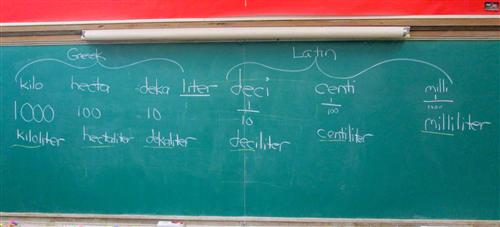 Greek Latin
kilo hecta deka liter deci centi milli
1000 100 10 1/10 1/100 1/1000
kiloliter hectaliter dekaliter deciliter centiliter milliliter